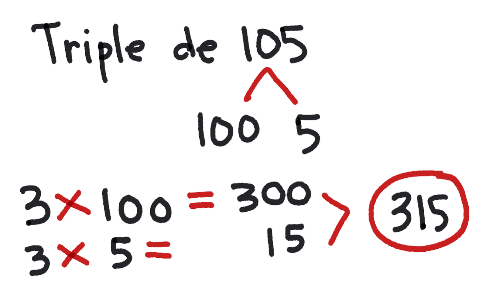 Triple de 105
100 5
3 × 100 = 300
3 × 5 = 15
> 315